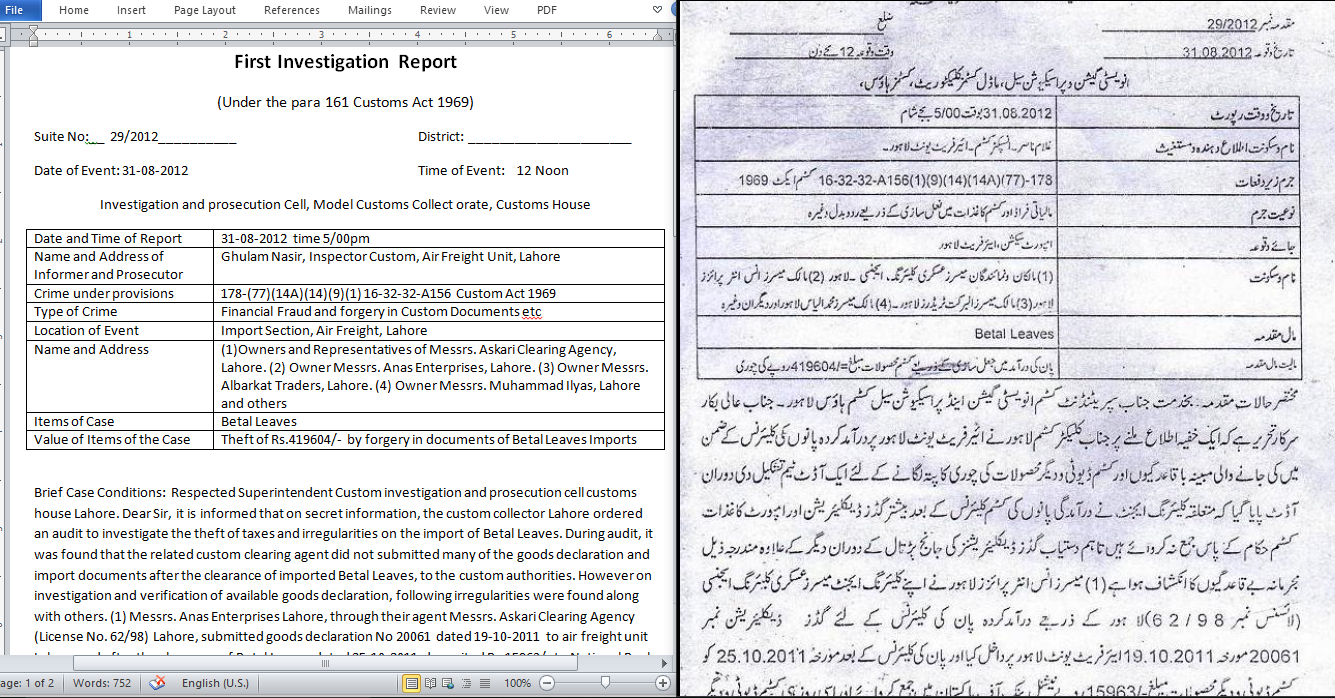 File Home Insert Page Layout References Mailings Review View PDF
1 2 3 4 5 6
First Investigation Report
(Under the para 161 Customs Act 1969)
Suite No:__ 29/2012__________ District: ______________________
Date of Event: 31-08-2012 Time of Event: 12 Noon
Investigation and prosecution Cell, Model Customs Collect orate, Customs House
Date and Time of Report 31-08-2012 time 5/00pm
Name and Address of Informer and Prosecutor Ghulam Nasir, Inspector Custom, Air Freight Unit, Lahore
Crime under provisions 178-(77)(14A)(14)(9)(1) 16-32-32-A156 Custom Act 1969
Type of Crime Financial Fraud and forgery in Custom Documents etc
Location of Event Import Section, Air Freight, Lahore
Name and Address (1)Owners and Representatives of Messrs. Askari Clearing Agency,
Lahore. (2) Owner Messrs. Anas Enterprises, Lahore. (3) Owner Messrs.
Albarkat Traders, Lahore. (4) Owner Messrs. Muhammad Ilyas, Lahore
and others
Items of Case Betal Leaves
Value of Items of the Case Theft of Rs.419604/- by forgery in documents of Betal Leaves Imports
Brief Case Conditions: Respected Superintendent Custom investigation and prosecution cell customs
house Lahore. Dear Sir, it is informed that on secret information, the custom collector Lahore ordered
an audit to investigate the theft of taxes and irregularities on the import of Betal Leaves. During audit, it
was found that the related custom clearing agent did not submitted many of the goods declaration and
import documents after the clearance of imported Betal Leaves, to the custom authorities. However on
investigation and verification of available goods declaration, following irregularities were found along
with others. (1) Messrs. Anas Enterprises Lahore, through their agent Messrs. Askari Clearing Agency
(License No. 62/98) Lahore, submitted goods declaration No 20061 dated 19-10-2011 to air freight unit
age: 1 of 2 Words: 752 English (U.S.) 100%
مقدمہ نمبر 29/2012 ضلع
تاریخ وقوعہ 31.08.2012 وقت وقوعہ 12 بجے دن
انویسٹی گیشن و پراسیکیوشن سیل، ماڈل کسٹمز کلیکٹوریٹ، کسٹمز ہاؤس،
تاریخ و وقت رپورٹ 31.08.2012 بوقت 5/00 بجے شام
نام و سکونت اطلاع دہندہ و مستغیث غلام ناصر۔ انسپکٹر کسٹم۔ ائیر فریٹ یونٹ لاہور۔
جرم زیر دفعات 16-32-32-A156(1)(9)(14)(14A)(77)-178 کسٹم ایکٹ 1969
نوعیت جرم مالیاتی فراڈ اور کسٹم کاغذات میں جعل سازی کے ذریعے ردوبدل وغیرہ
جائے وقوعہ امپورٹ سیکشن، ائیر فریٹ لاہور
نام و سکونت (1) مالکان و نمائندگان میسرز عسکری کلیئرنگ۔ ایجنسی۔ لاہور (2) مالک میسرز انس انٹر پرائزز
لاہور (3) مالک میسرز البرکت ٹریڈرز لاہور۔ (4) مالک میسرز محمد الیاس لاہور اور دیگران وغیرہ
مال مقدمہ Betal Leaves
مالیت مال مقدمہ پان کی درآمد میں جعل سازی کے ذریعے کسٹم محصولات مبلغ =/419604 روپے کی چوری
مختصر حالات مقدمہ۔ بخدمت جناب سپریٹنڈنٹ کسٹم انویسٹی گیشن اینڈ پراسیکیوشن سیل کسٹم ہاؤس لاہور۔ جناب عالی بکار
سرکار تحریر ہے کہ ایک خفیہ اطلاع ملنے پر جناب کلیکٹر کسٹم لاہور نے ائیر فریٹ یونٹ لاہور پر درآمد کردہ پانوں کی کلیئرنس کے ضمن
میں کی جانے والی مبینہ باقاعدگیوں اور کسٹم ڈیوٹی و دیگر محصولات کی چوری کا پتہ لگانے کے لئے ایک آڈٹ ٹیم تشکیل دی دوران
آڈٹ پایا گیا کہ متعلقہ کلیئرنگ ایجنٹ نے درآمدگی پانوں کی کسٹم کلیئرنس کے بعد بیشتر گڈز ڈیکلیریشن اور امپورٹ کاغذات
کسٹم حکام کے پاس جمع نہ کروائے ہیں تاہم دستیاب گڈز ڈیکلیریشنز کی جانچ پڑتال کے دوران دیگر کے علاوہ مندرجہ ذیل
مجرمانہ بے قاعدگیوں کا انکشاف ہوا ہے (1) میسرز انس انٹر پرائزز لاہور نے اپنے کلیئرنگ ایجنٹ میسرز عسکری کلیئرنگ ایجنسی
(لائسنس نمبر 62/98) لاہور کے ذریعے درآمد کردہ پان کی کلیئرنس کے لئے گڈز ڈیکلیریشن نمبر
20061 مورخہ 19.10.2011 ائیر فریٹ یونٹ لاہور پر داخل کیا اور پان کی کلیئرنس کے بعد مورخہ 25.10.2011 کو